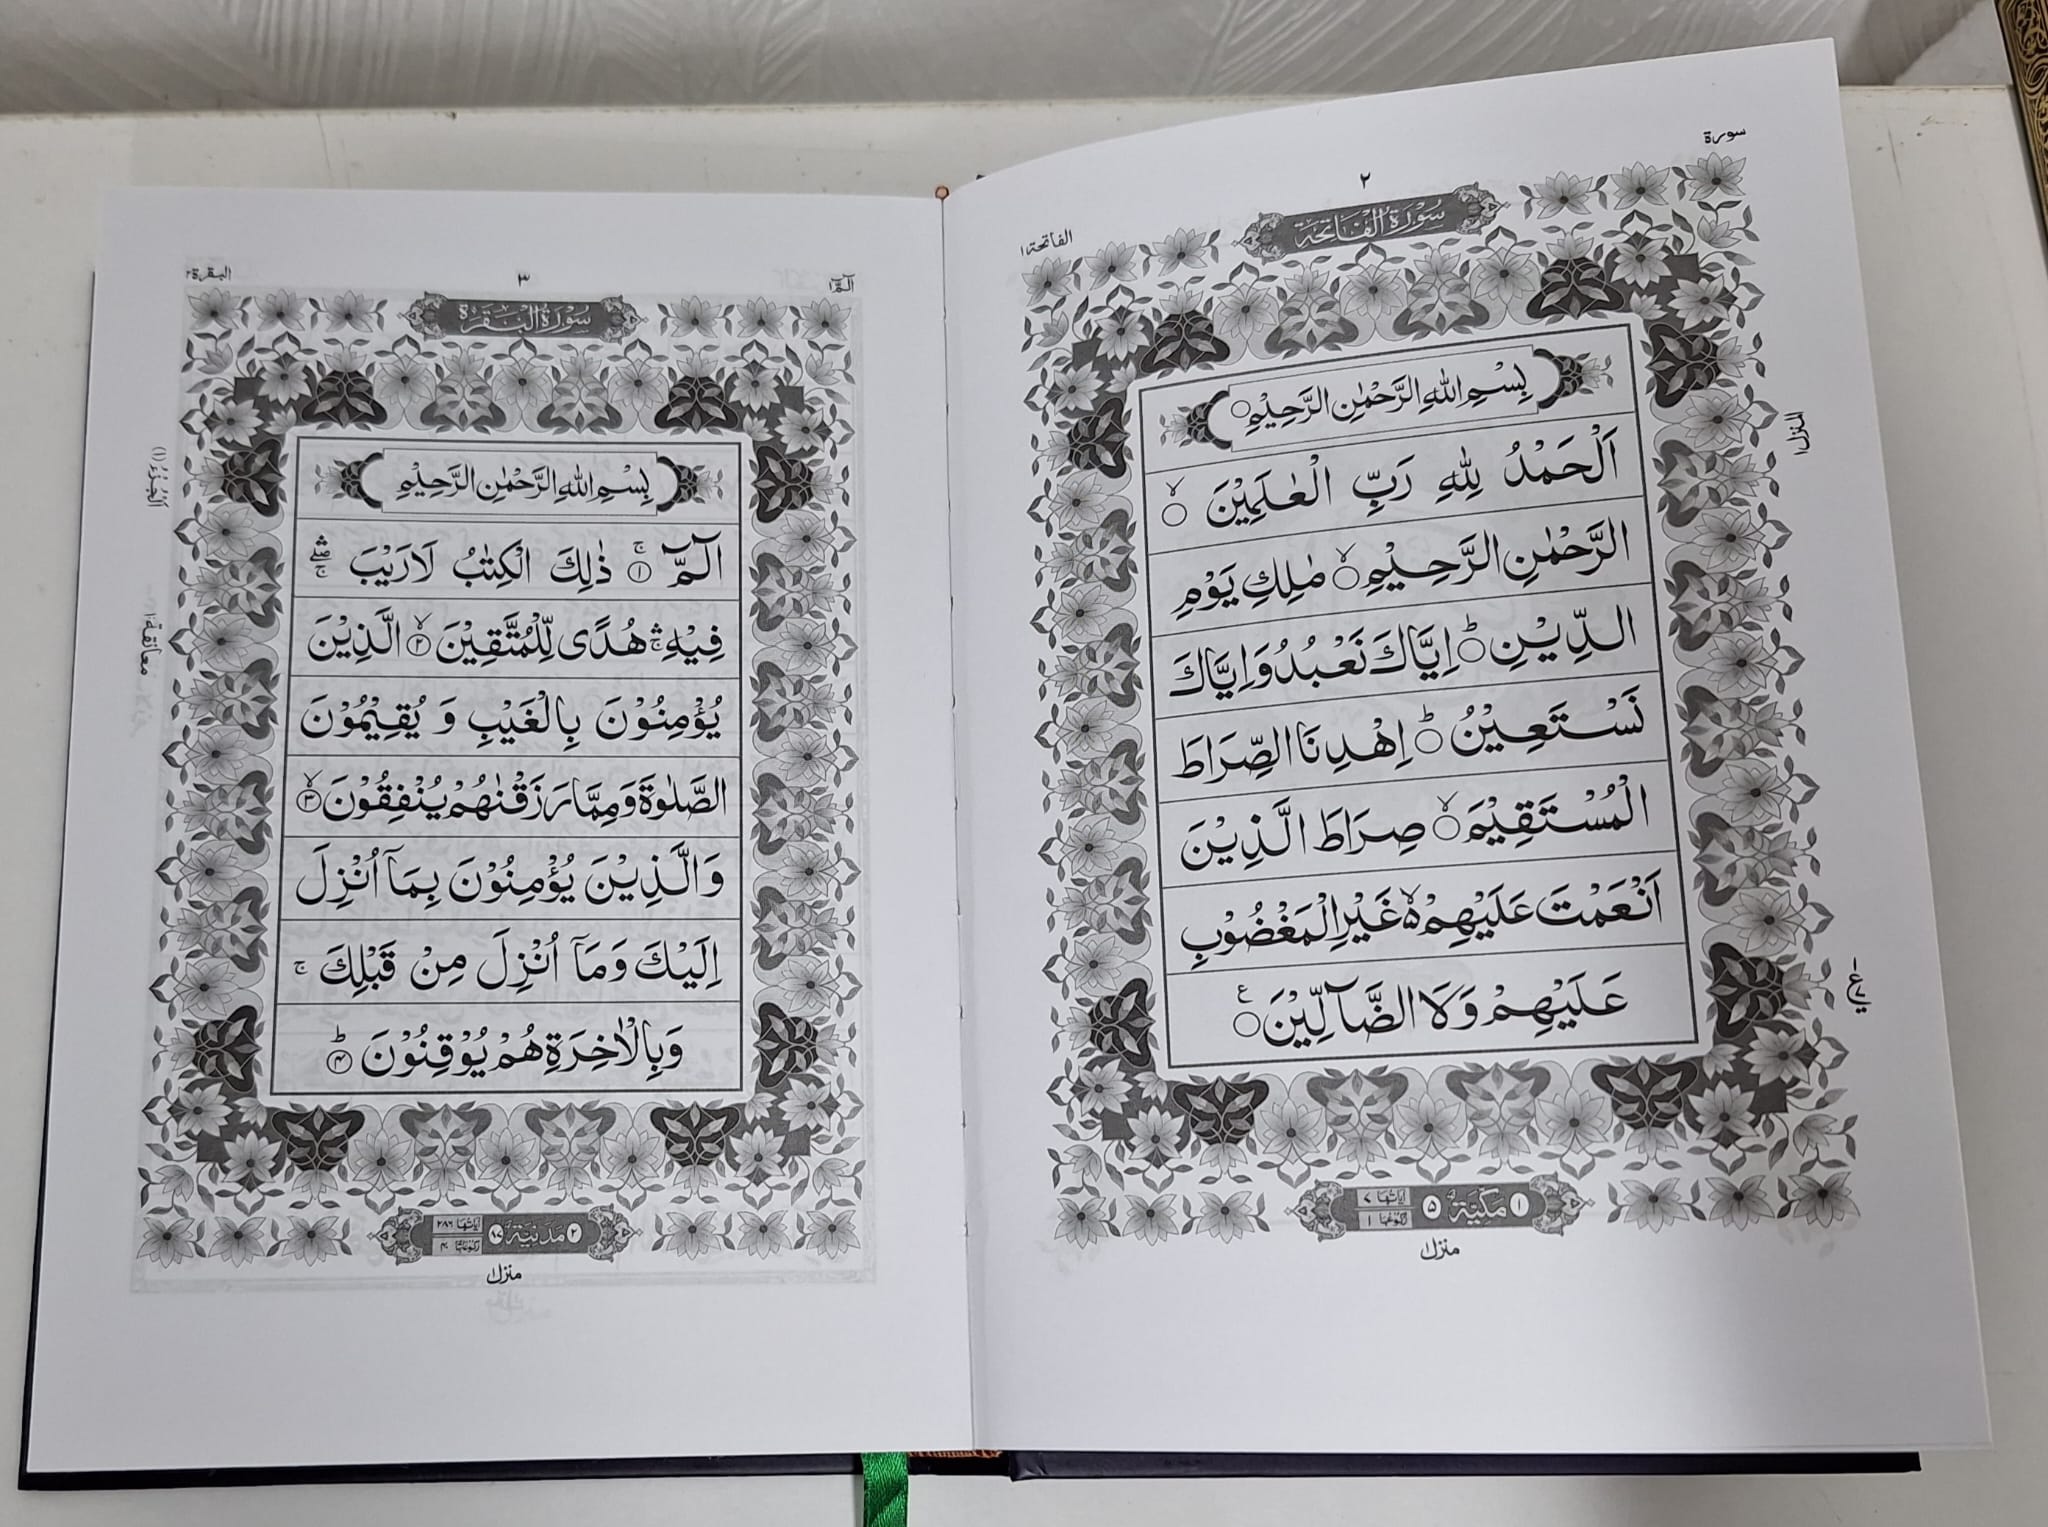 سورة
٢
الفاتحة ١
سُوْرَةُ الْفَاتِحَةِ
بِسْمِ اللهِ الرَّحْمٰنِ الرَّحِيْمِ ○
اَلْحَمْدُ لِلّٰهِ رَبِّ الْعٰلَمِيْنَ ○ۙ
الرَّحْمٰنِ الرَّحِيْمِ ○ۙ مٰلِكِ يَوْمِ
الدِّيْنِ ○ؕ اِيَّاكَ نَعْبُدُ وَاِيَّاكَ
نَسْتَعِيْنُ ○ؕ اِهْدِنَا الصِّرَاطَ
الْمُسْتَقِيْمَ ○ۙ صِرَاطَ الَّذِيْنَ
اَنْعَمْتَ عَلَيْهِمْ ۙ۬ غَيْرِ الْمَغْضُوْبِ
عَلَيْهِمْ وَلَا الضَّآلِّيْنَ ○ع
المنزل ١
١ ع ٧
١ مَكِّيَّةٌ ٥
اٰيَاتُهَا ٧
رُكُوْعُهَا ١
منزل ١
الٓمّٓ ١
٣
البقرة ٢
سُوْرَةُ الْبَقَرَةِ
بِسْمِ اللهِ الرَّحْمٰنِ الرَّحِيْمِ
الٓمّٓ ۚ﴿۱﴾ ذٰلِكَ الْكِتٰبُ لَا رَيْبَ ۛۖۚ
فِيْهِ ۛۚ هُدًى لِّلْمُتَّقِيْنَ ۙ﴿۲﴾ الَّذِيْنَ
يُؤْمِنُوْنَ بِالْغَيْبِ وَ يُقِيْمُوْنَ
الصَّلٰوةَ وَمِمَّا رَزَقْنٰهُمْ يُنْفِقُوْنَ ۙ﴿۳﴾
وَالَّذِيْنَ يُؤْمِنُوْنَ بِمَآ اُنْزِلَ
اِلَيْكَ وَمَآ اُنْزِلَ مِنْ قَبْلِكَ ۚ
وَبِالْاٰخِرَةِ هُمْ يُوْقِنُوْنَ ؕ﴿۴﴾
اَلْجُزْءُ (١)
معانقة ١
٢ مَدَنِيَّةٌ ٨٧
اٰيَاتُهَا ٢٨٦
رُكُوْعُهَا ٤٠
منزل ١